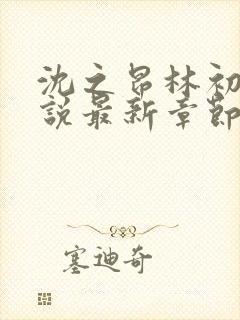 沈之昂林初
說最新章節
塞迪奇